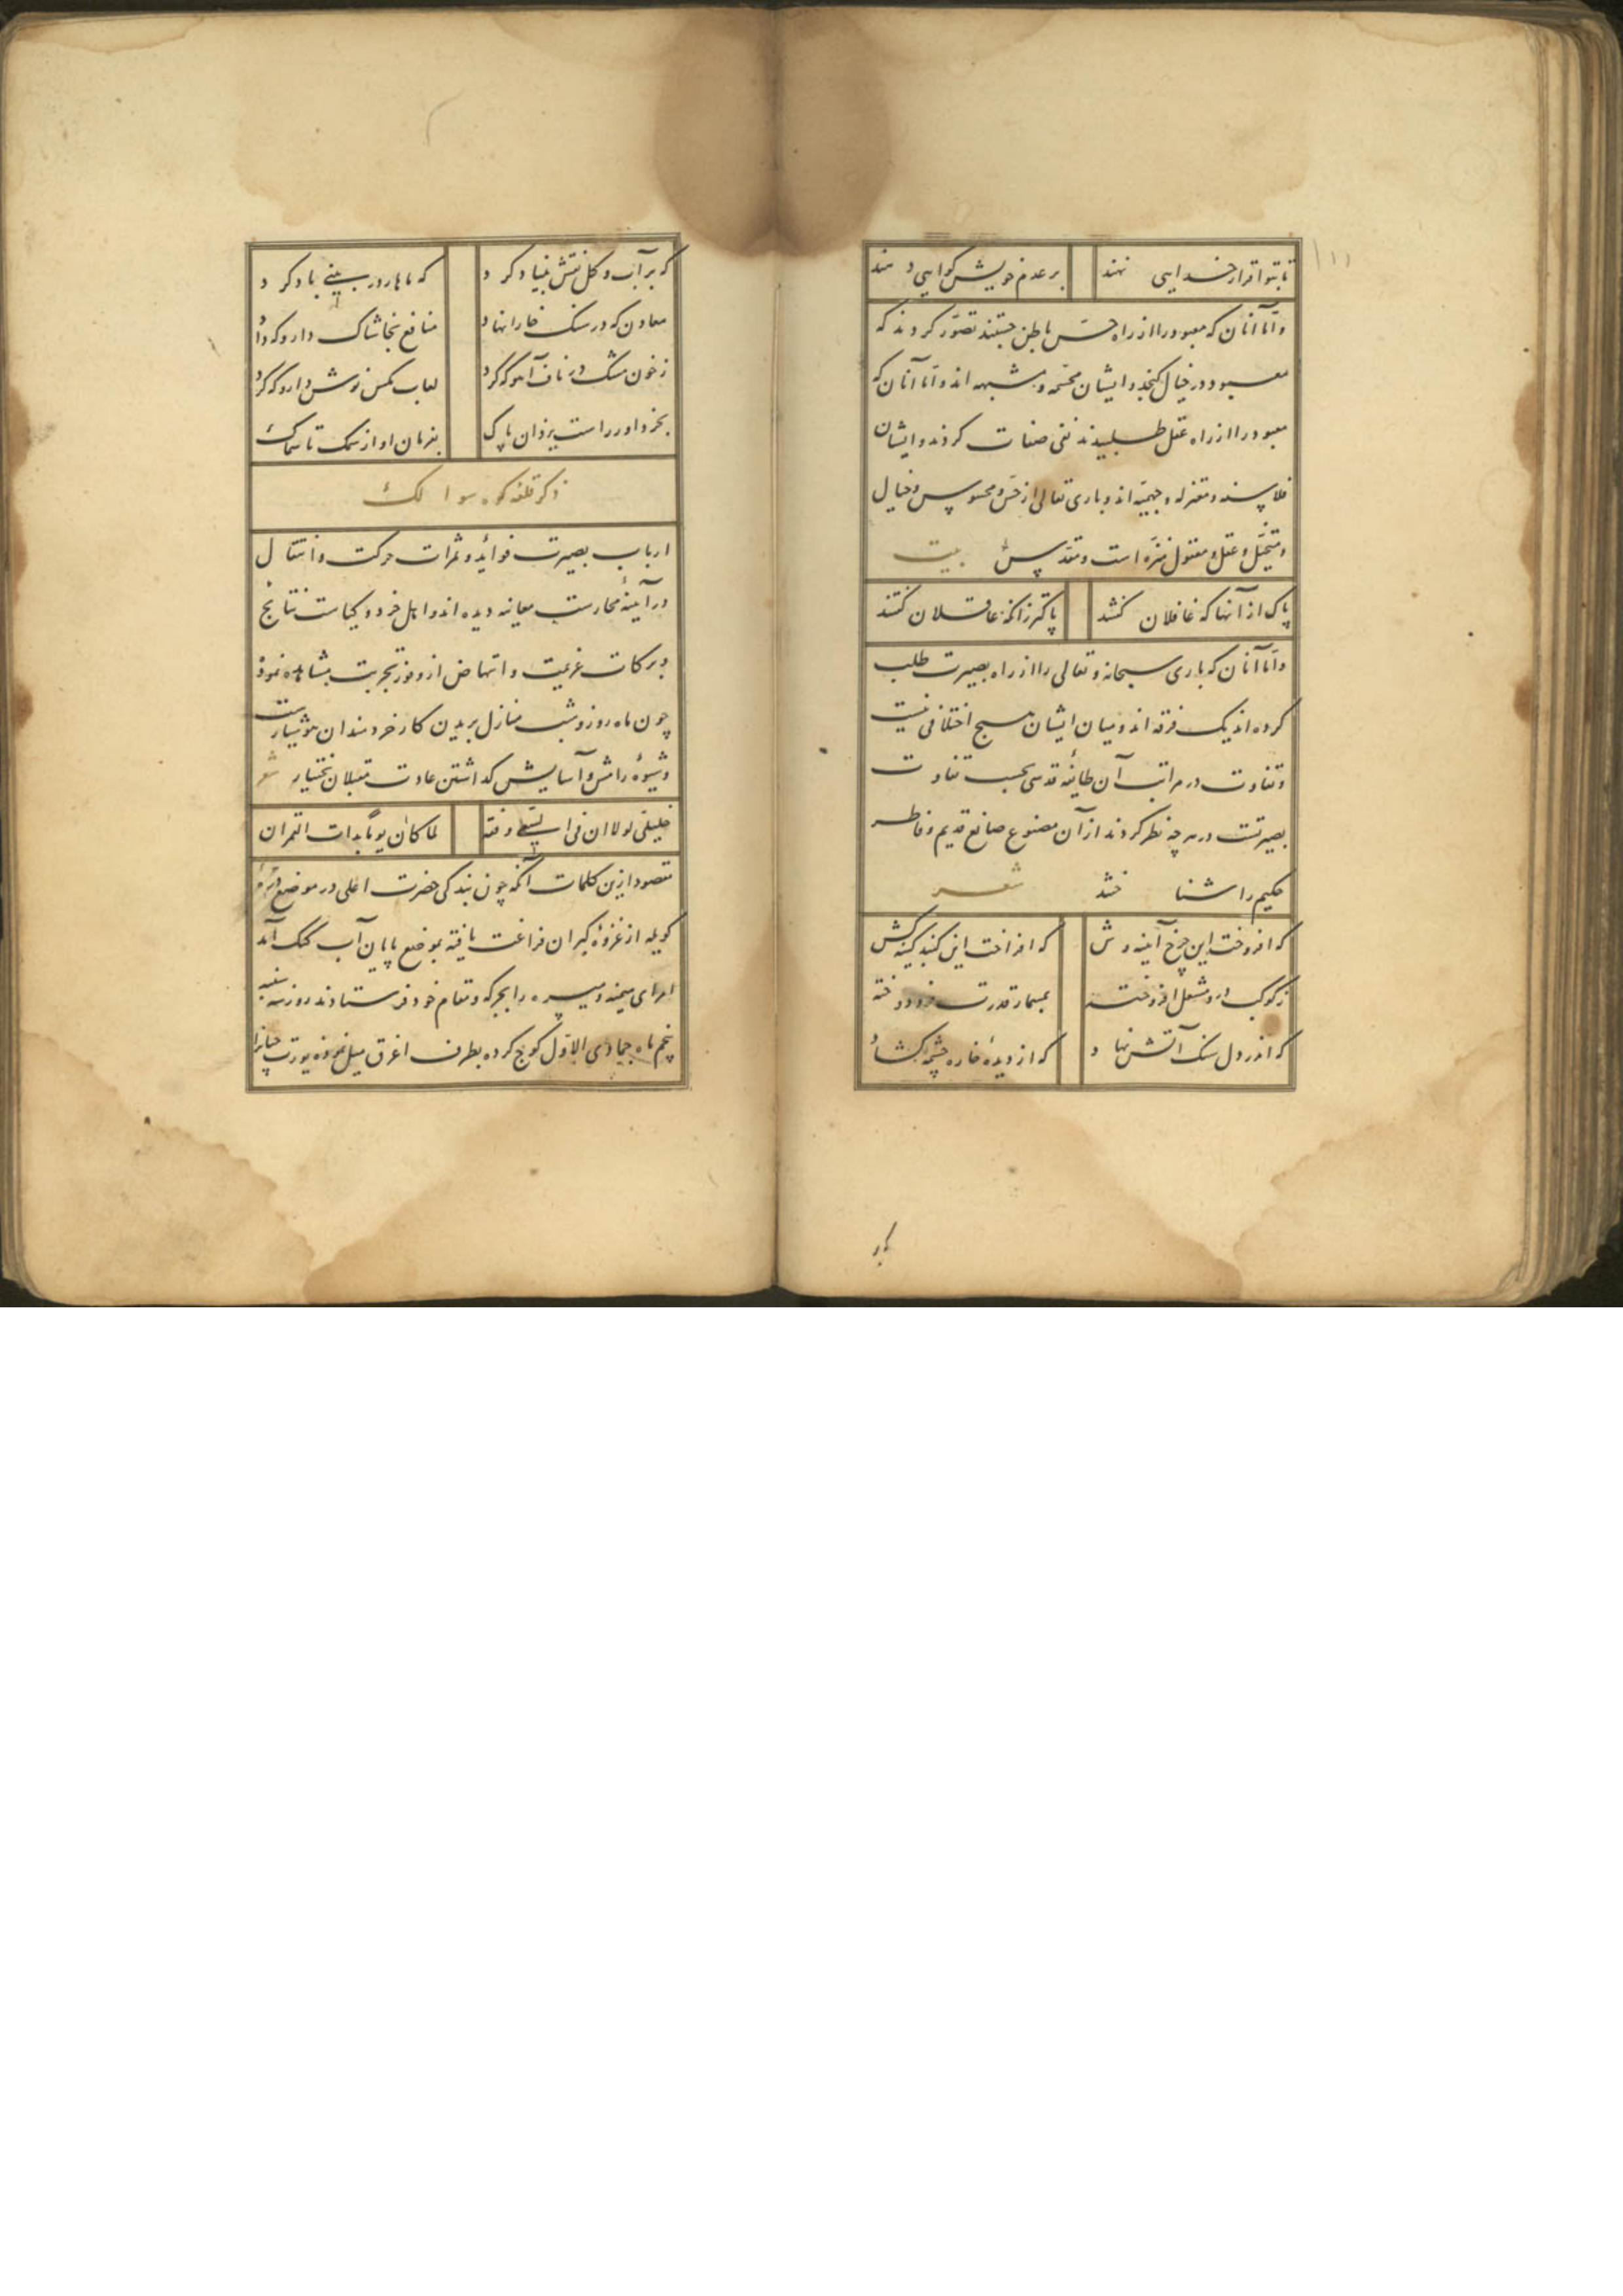 ۱۱۱
تا بتو اقرار خدایی نهند بر عدم خویش کواهی دهند
و امّا آنان که معبود را از راه حسّ باطن جستند تصوّر کردند که
معبود در خیال کنجد و ایشان مجسّمه و مشبهه اند و امّا آنان که
معبود را از راه عقل طلبیدند نفی صفات کردند و ایشان
فلاسفه و معتزله و جهمیّه اند و باری تعالی از حسّ و محسوس و خیال
و متخیّل و عقل و معقول منزّه است و مقدّس بیت
پاک از آنها که غافلان کفتند پاکتر زانکه عاقلان کفتند
و امّا آنان که باری سبحانه و تعالی را از راه بصیرت طلب
کرده اند یک فرقه اند و میان ایشان هیچ اختلافی نیست
و تفاوت در مراتب آن طائفه قدسی بحسب تفاوت
بصیرتست در هر چه نظر کردند از آن مصنوع صانع قدیم و فاطر
حکیم را شناختند شعر
که افروخت این چرخ آینه وش که افراخت این کنبد کینه کش
ز کوکب درو مشعل افروخته بمسمار قدرت فرو دوخته
که اندر دل سنک آتش نهاد که از دیدهٔ خاره چشمه کشاد
که بر آب و کل نقش بنیاد کرد که ماهار در بینی باد کرد
معادن که در سنک خارا نهاد منافع بخاشاک دارو که داد
ز خون مشک در ناف آهو که کرد لعاب مکس نوش دارو که کرد
بخز داور راست یزدان پاک بفرمان او از سمک تا سماک
ذکر قلعه کوه سوالک
ارباب بصیرت فوائد و ثمرات حرکت و انتقال
در آینهٔ ممارست معاینه دیده اند و اهل خرد و کیاست نتایج
و برکات عزیمت و انتهاض از وفور تجربت مشاهده نموده
چون ماه روز و شب منازل بریدن کار خردمندان هوشیارست
و شیوهٔ رامش و آسایش کداشتن عادت مقبلان بختیار شعر
خلیلیّ لولا ان فی السعی رفعة لما کان یوماً یدأب القمران
مقصود ازین کلمات آنکه چون بندکی حضرت اعلی در موضع درّهٔ
کوپله از غزوهٔ کبران فراغت یافته بموضع پایان آب کنک آمد
امرای میمنه و میسره را بجرکه و مقام خود فرستادند روز سه شنبه
پنجم ماه جمادی الاوّل کوچ کرده بطرف اغرق میل نموده یورت